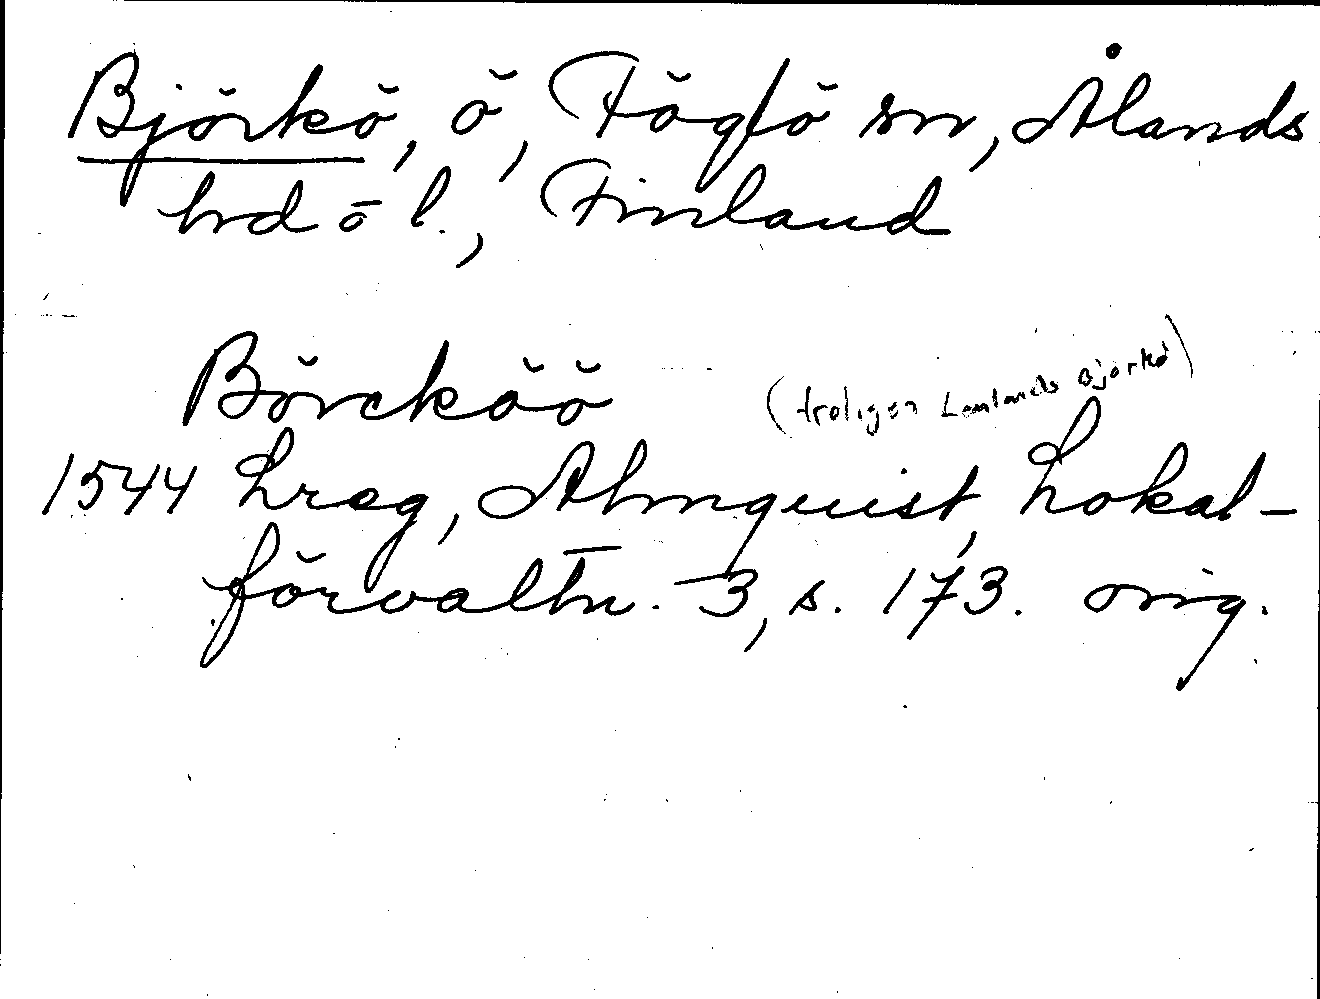 Björkö, ö, Föglö sn, Ålands
hrd o l., Finland
Börcköö
(troligen Lemlands Björkö)
1544 Lreg, Almquist, Lokal-
förvaltn. 3, s. 173. orig.